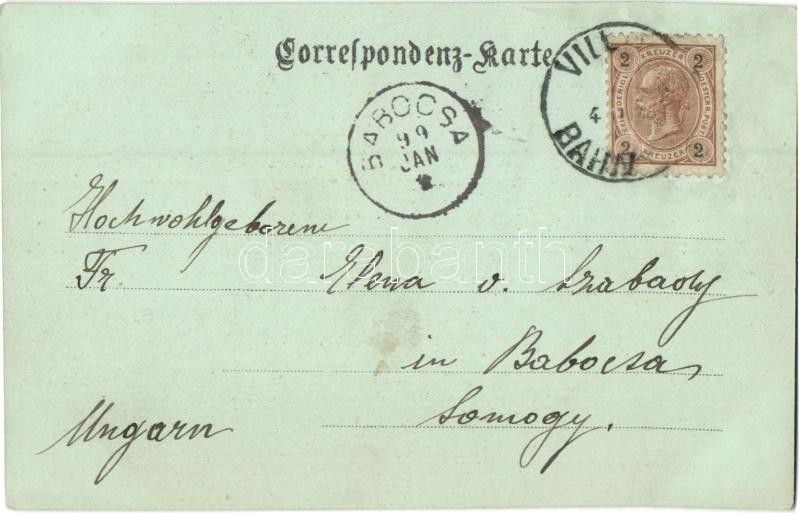 Correspondenz-Karte
VILL
4
BAHN
BABOCSA
99
JAN
2 KREUZER 2
KAIS.KOENIGL. OESTERR.POST
2 KREUZER 2
darabanth
Hochwohlgeborene
Fr. Elena v. Szabady
in Babocsa
Somogy.
Ungarn